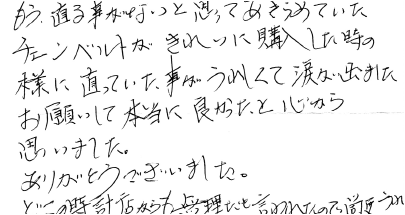 もう、直る事がないと思ってあきらめていた
チェンベルトがきれいに購入した時の
様に直っていた事がうれしくて涙が出ました
お願いして本当に良かったと心から
思いました。
ありがとうございました。
どこの時計店からも無理だと言われたので尚更うれ